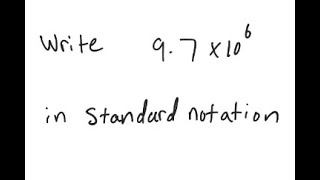 Write 9.7 x10⁶
in standard notation